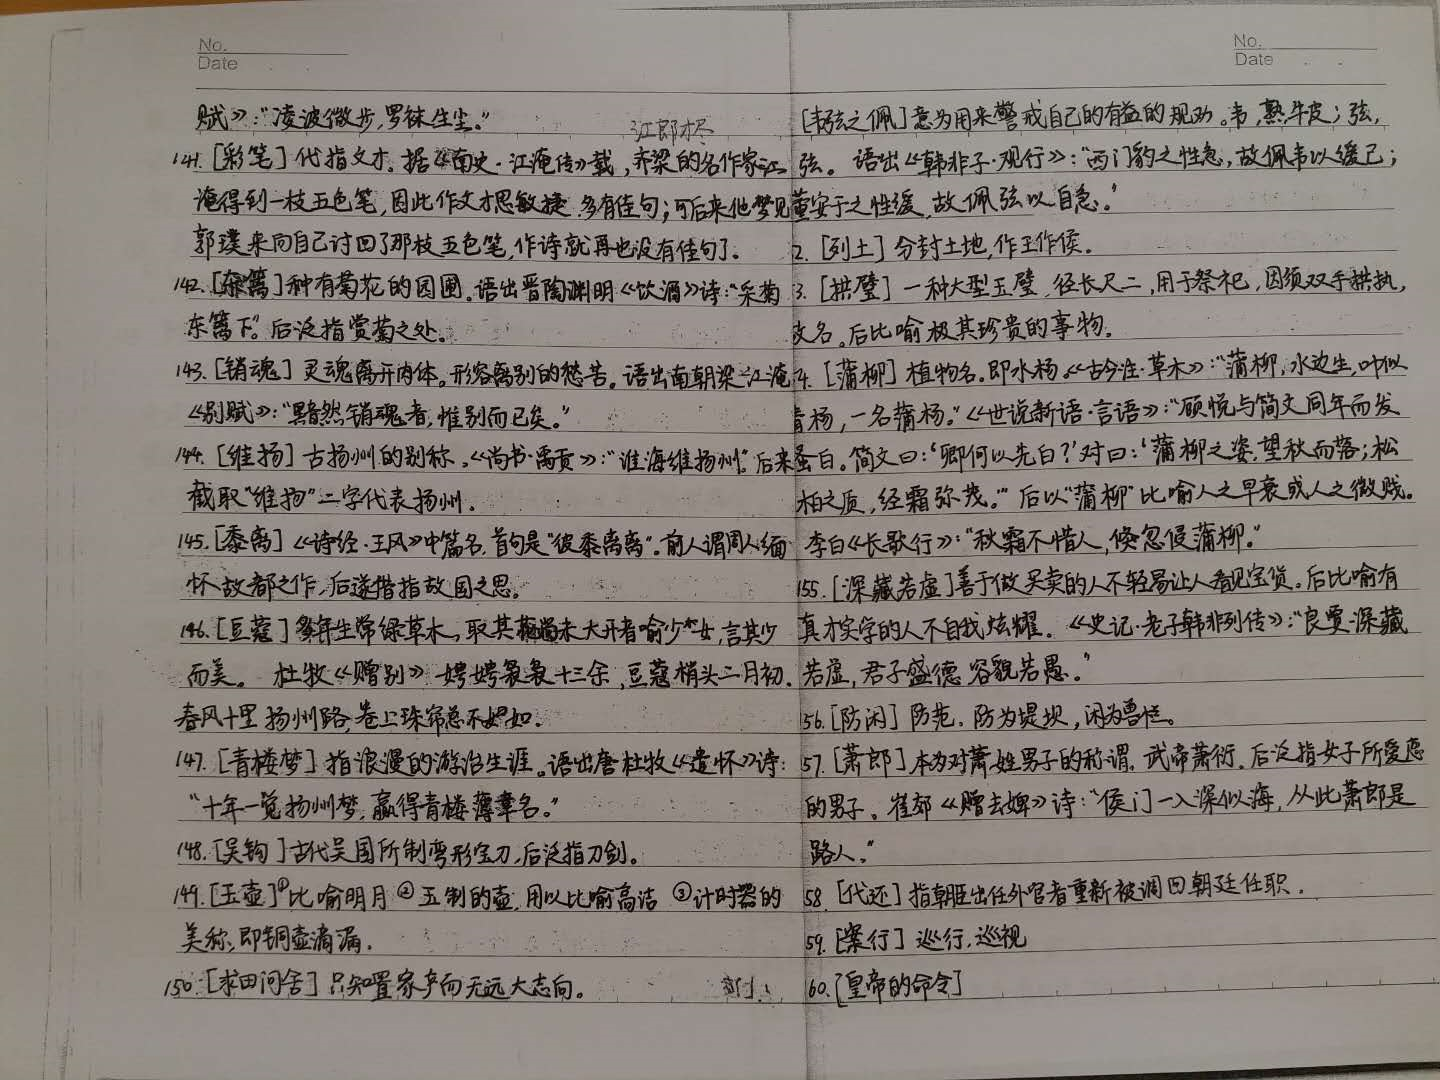 No.
Date
赋》：“凌波微步，罗袜生尘。”
江郎才尽
141. [彩笔] 代指文才。据《南史·江淹传》载，齐梁的名作家江
淹得到一枝五色笔，因此作文才思敏捷，多有佳句；可后来他梦见
郭璞来向自己讨回了那枝五色笔，作诗就再也没有佳句了。
142. [东篱] 种有菊花的园圃。语出晋陶渊明《饮酒》诗：“采菊
东篱下”。后泛指赏菊之处。
143. [销魂] 灵魂离开肉体。形容离别的愁苦。语出南朝梁江淹
《别赋》：“黯然销魂者，惟别而已矣。”
144. [维扬] 古扬州的别称。《尚书·禹贡》：“淮海维扬州”。后来
截取“维扬”二字代表扬州.
145. [黍离] 《诗经·王风》中篇名，首句是“彼黍离离”。前人谓周人缅
怀故都之作，后遂借指故国之思。
146. [豆蔻] 多年生常绿草木，取其尚未大开者喻少女，言其少
而美。 杜牧《赠别》 娉娉袅袅十三余，豆蔻梢头二月初.
春风十里扬州路，卷上珠帘总不如.
147. [青楼梦] 指浪漫的游冶生涯。语出唐杜牧《遣怀》诗：
“十年一觉扬州梦，赢得青楼薄幸名。”
148. [吴钩] 古代吴国所制弯形宝刀，后泛指刀剑。
149. [玉壶] ①比喻明月 ②玉制的壶，用以比喻高洁 ③计时器的
美称，即铜壶滴漏.
150. [求田问舍] 只知置家产而无远大志向。
No.
Date
[韦弦之佩] 意为用来警戒自己的有益的规劝。韦，熟牛皮；弦，
弦。 语出《韩非子·观行》：“西门豹之性急，故佩韦以缓己；
董安于之性缓，故佩弦以自急。”
2. [列土] 分封土地，作王作侯.
3. [拱璧] 一种大型玉璧，径长尺二，用于祭祀，因须双手拱执，
故名。后比喻极其珍贵的事物.
4. [蒲柳] 植物名。即水杨。《古今注·草木》：“蒲柳，水边生，叶似
青杨，一名蒲杨。”《世说新语·言语》：“顾悦与简文同年而发
蚤白。简文曰：‘卿何以先白？’对曰：‘蒲柳之姿，望秋而落；松
柏之质，经霜弥茂。’” 后以“蒲柳”比喻人之早衰或人之微贱。
李白《长歌行》：“秋霜不惜人，倏忽侵蒲柳。”
155. [深藏若虚] 善于做买卖的人不轻易让人看见宝货。后比喻有
真才实学的人不自我炫耀. 《史记·老子韩非列传》：“良贾深藏
若虚，君子盛德容貌若愚。”
56. [防闲] 防范. 防为堤坝，闲为兽栏。
57. [萧郎] 本为对萧姓男子的称谓. 武帝萧衍. 后泛指女子所爱恋
的男子。崔郊《赠去婢》诗：“侯门一入深似海，从此萧郎是
路人。”
58. [代还] 指朝臣出任外官者重新被调回朝廷任职.
59. [案行] 巡行，巡视
60. [皇帝的命令]